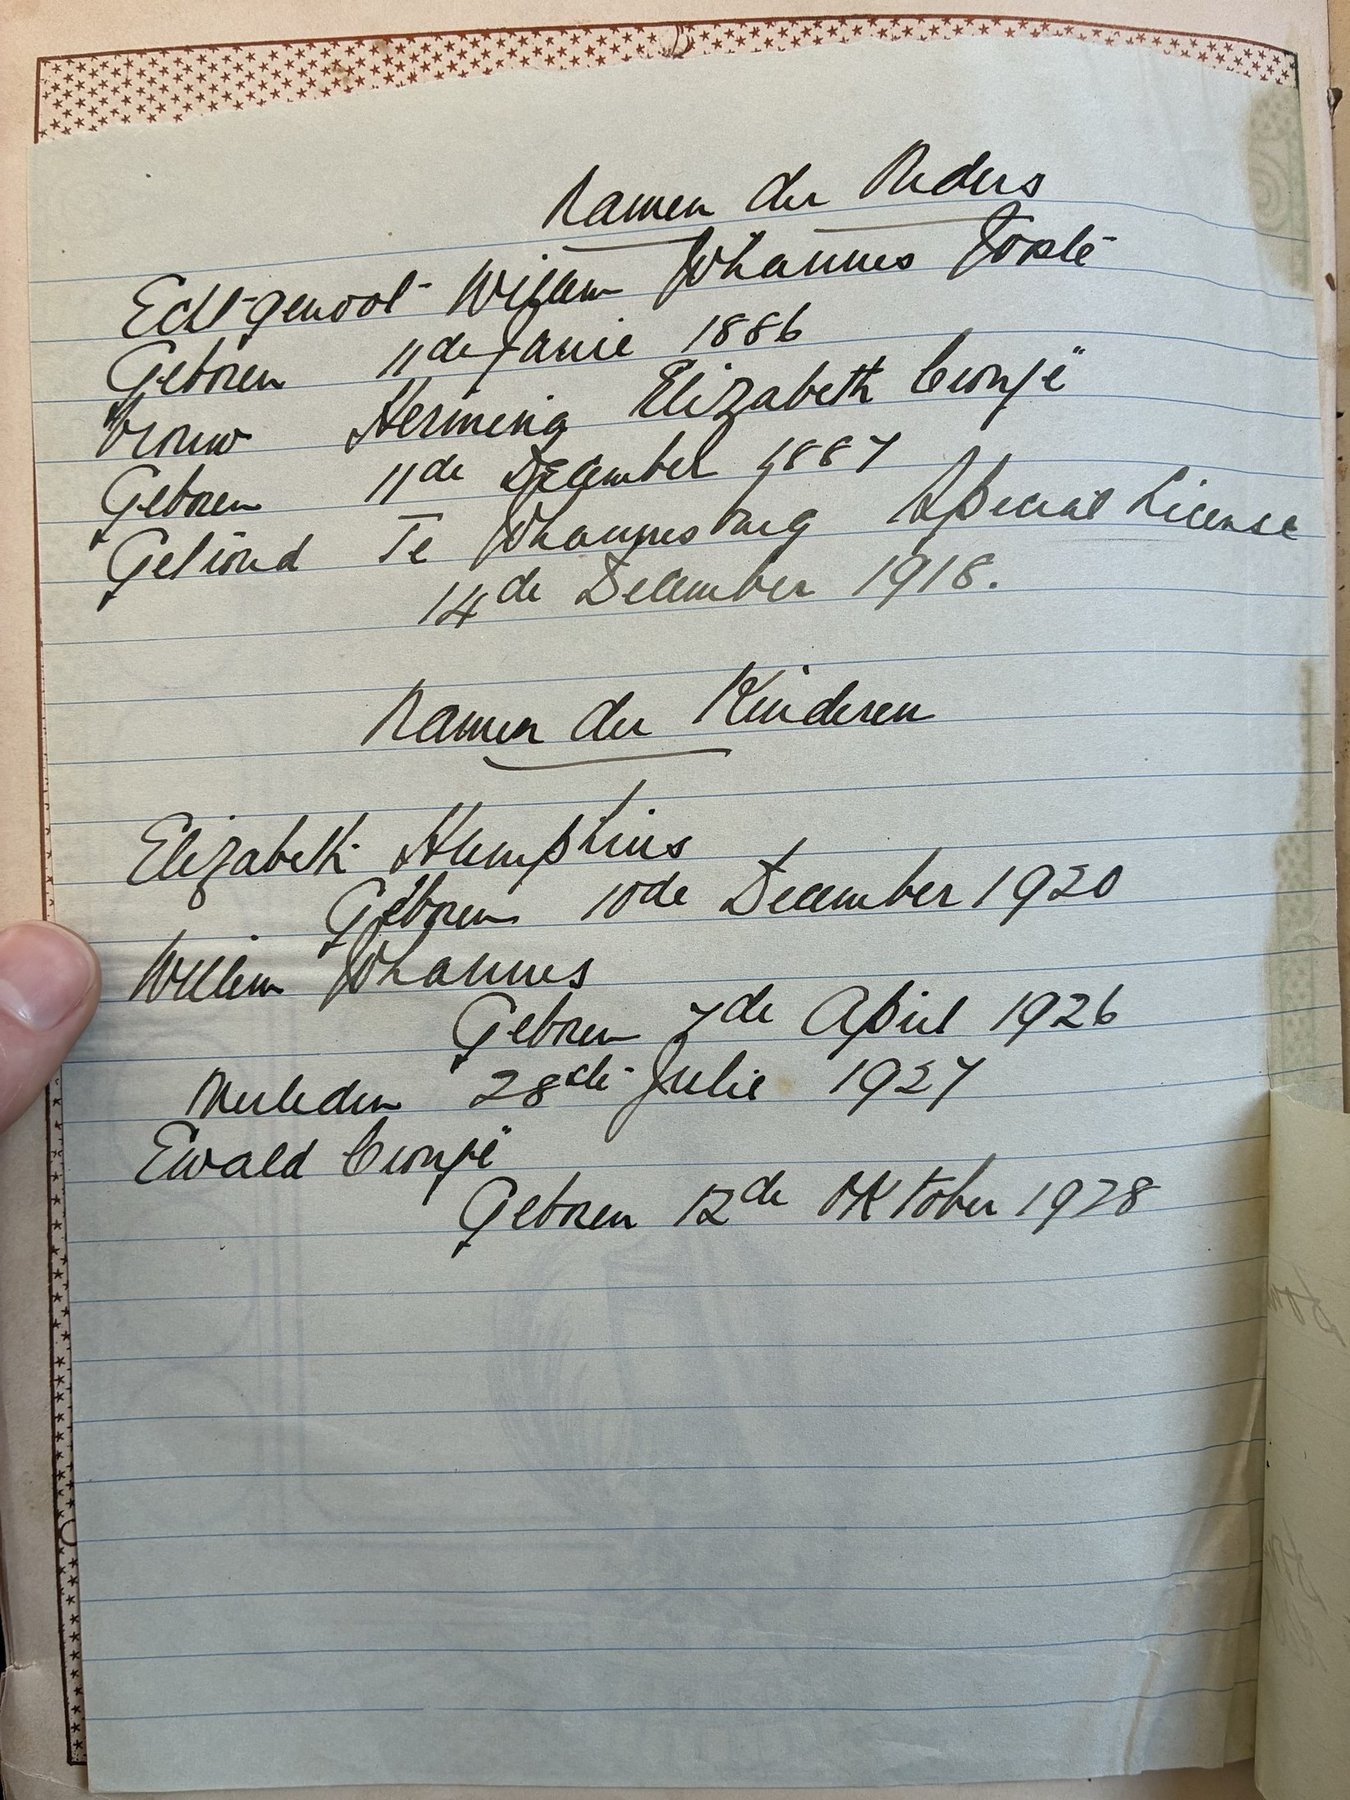 Namen der Ouders
Echt-genoot Willem Johannes Joste
Geboren 11de Junie 1886
Vrouw Hermina Elizabeth Cronjé
Geboren 11de December 1887
Getroud Te Johannesburg Special License
14de December 1918.
Namen der Kinderen
Elizabeth Humphries
Geboren 10de December 1920
Willem Johannes
Geboren 7de April 1926
Overleden 28ste Julie 1927
Ewald Cronjé
Geboren 12de Oktober 1928